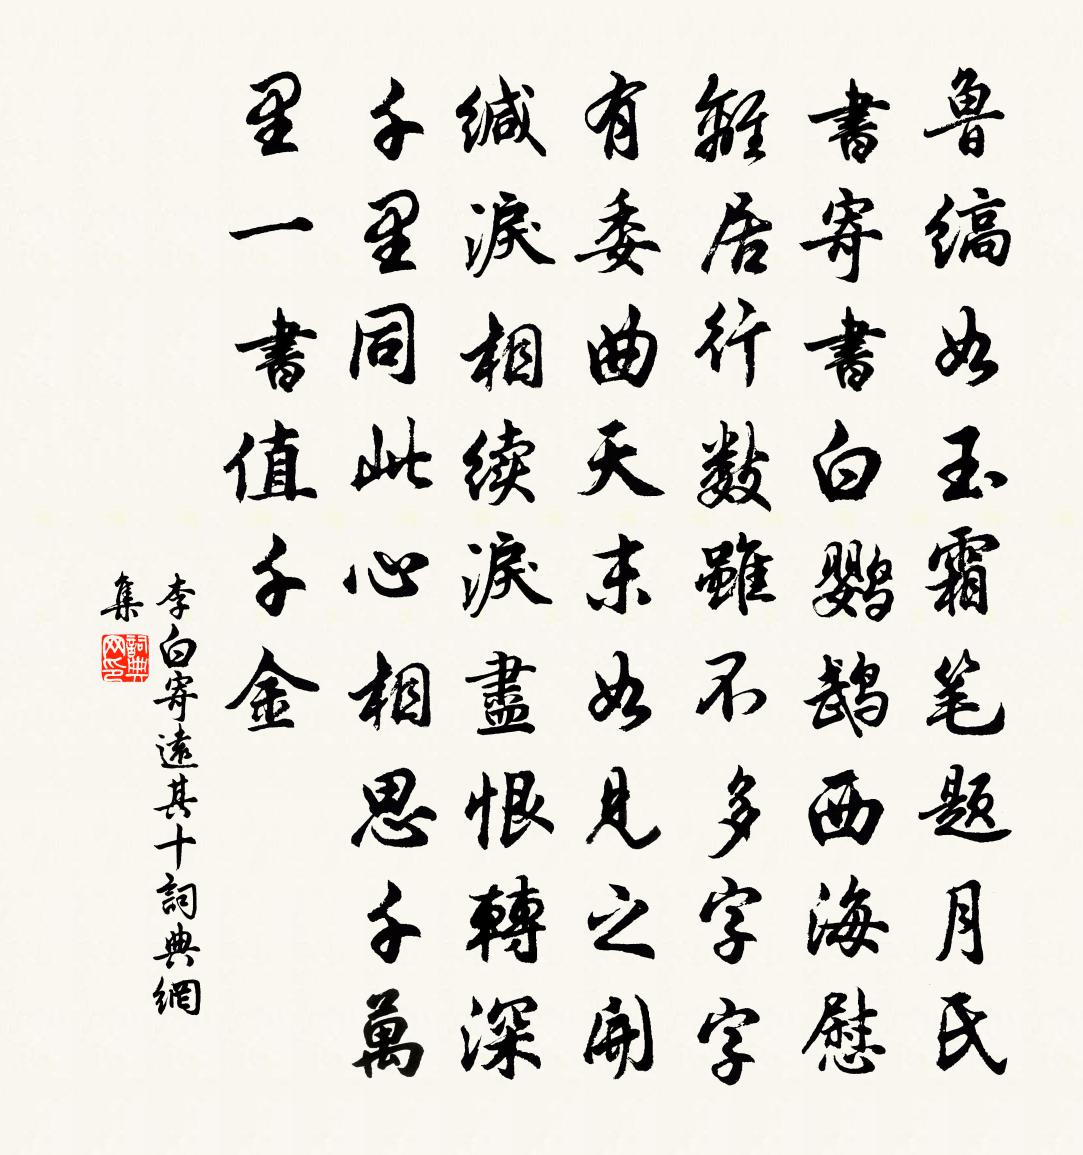 魯縞如玉霜笔题月氏
書寄書白鹦鹉西海慰
離居行数雖不多字字
有委曲天末如見之開
缄淚相续淚盡恨轉深
千里同此心相思千萬
里一書值千金
李白寄遠其十詞典網
集
詞典
网印